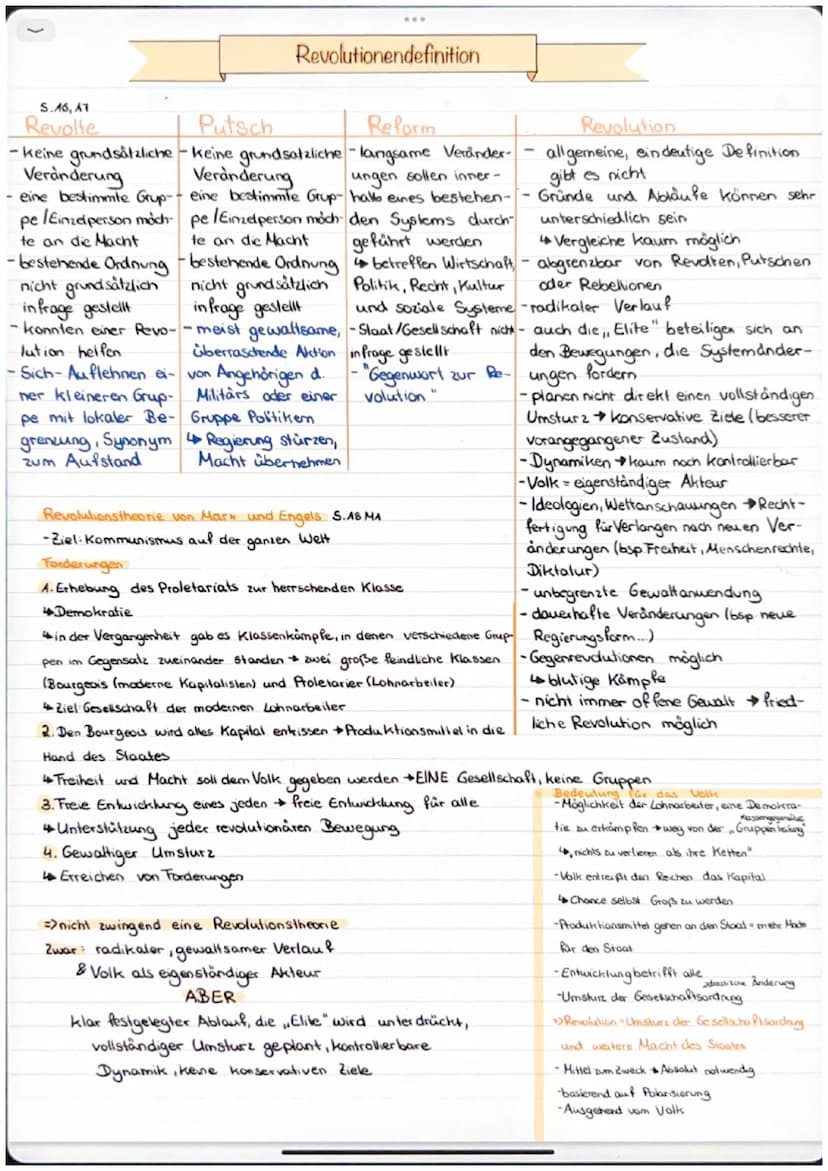 Revolutionendefinition
S.16, 17
Revolte
- keine grundsätzliche
Veränderung
- eine bestimmte Grup-
pe /Einzelperson möch-
te an die Macht
- bestehende Ordnung
nicht grundsätzlich
infrage gestellt
- konnten einer Revo-
lution helfen
- Sich-Auflehnen ei-
ner kleineren Grup-
pe mit lokaler Be-
grenzung, Synonym
zum Aufstand
Putsch
- keine grundsätzliche
Veränderung
- eine bestimmte Grup-
pe /Einzelperson möch-
te an die Macht
- bestehende Ordnung
nicht grundsätzlich
infrage gestellt
- meist gewaltsame,
überraschende Aktion
von Angehörigen d.
Militärs oder einer
Gruppe Politikern
↳ Regierung stürzen,
Macht übernehmen
Reform
- langsame Veränder-
ungen sollen inner-
halb eines bestehen-
den Systems durch-
geführt werden
↳ betreffen Wirtschaft,
Politik, Recht, Kultur
und soziale Systeme
- Staat/Gesellschaft nicht
infrage gestellt
- "Gegenwort zur Re-
volution"
Revolution
- allgemeine, eindeutige Definition
gibt es nicht
- Gründe und Abläufe können sehr
unterschiedlich sein
↳ Vergleiche kaum möglich
- abgrenzbar von Revolten, Putschen
oder Rebellionen
- radikaler Verlauf
- auch die „Elite" beteiligen sich an
den Bewegungen, die Systemänder-
ungen fordern
- planen nicht direkt einen vollständigen
Umsturz → konservative Ziele (besserer
vorangegangener Zustand)
- Dynamiken → kaum noch kontrollierbar
- Volk = eigenständiger Akteur
- Ideologien, Weltanschauungen → Recht-
fertigung für Verlangen nach neuen Ver-
änderungen (bsp. Freiheit, Menschenrechte,
Diktatur)
- unbegrenzte Gewaltanwendung
- dauerhafte Veränderungen (bsp neue
Regierungsform...)
- Gegenrevolutionen möglich
↳ blutige Kämpfe
- nicht immer offene Gewalt → fried-
liche Revolution möglich
Revolutionstheorie von Marx und Engels S.18 M1
- Ziel: Kommunismus auf der ganzen Welt
Forderungen
1. Erhebung des Proletariats zur herrschenden Klasse
↳ Demokratie
↳ in der Vergangenheit gab es Klassenkämpfe, in denen verschiedene Grup-
pen im Gegensatz zueinander standen → zwei große feindliche Klassen
(Bourgeois (moderne Kapitalisten) und Proletarier (Lohnarbeiter)
↳ Ziel: Gesellschaft der modernen Lohnarbeiter
2. Den Bourgeois wird alles Kapital entrissen → Produktionsmittel in die
Hand des Staates
↳ Freiheit und Macht soll dem Volk gegeben werden → EINE Gesellschaft, keine Gruppen
3. Freie Entwicklung eines jeden → freie Entwicklung für alle
↳ Unterstützung jeder revolutionären Bewegung
4. Gewaltiger Umsturz
↳ Erreichen von Forderungen
=> nicht zwingend eine Revolutionstheorie
Zwar: radikaler, gewaltsamer Verlauf
& Volk als eigenständiger Akteur
ABER
klar festgelegter Ablauf, die „Elite" wird unterdrückt,
vollständiger Umsturz geplant, kontrollierbare
Dynamik, keine konservativen Ziele
Bedeutung für das Volk
- Möglichkeit der Lohnarbeiter, eine Demokra-
tie zu erkämpfen → weg von der „Gruppenteilung"
Klassengegensätze
↳ „nichts zu verlieren als ihre Ketten"
- Volk entreißt den Reichen das Kapital
↳ Chance selbst Groß zu werden
- Produktionsmittel gehen an den Staat = mehr Macht
für den Staat
- Entwicklung betrifft alle
- Umsturz der Gesellschaftsordnung
Änderung
=> Revolution = Umsturz der Gesellschaftsordnung
und weitere Macht des Staates
- Mittel zum Zweck → Absolut notwendig
- basierend auf Polarisierung
- Ausgehend vom Volk